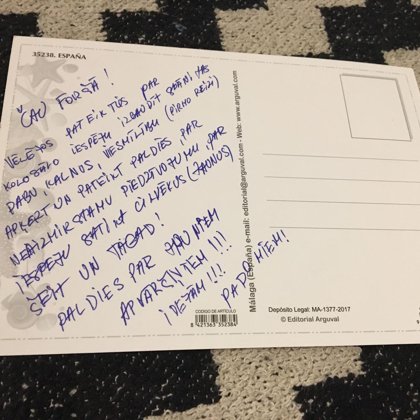 35238. ESPAÑA
ČAU FORŠĀ!
VĒLĒJOS PATEIKTIES PAR
KOLOSĀLO IESPĒJU IZBAUDĪT
DABU KALNOS, VIESMĪLĪBU (PIRMO REIZI)
ARĪ UN PATEIKT PALDIES PAR
NEAIZMIRSTAMU PIEDZĪVOJUMU, PAR
IESPĒJU SATIKT CILVĒKUS (JAUNUS)
ŠEIT UN TAGAD!
PALDIES PAR JAUNIEM
APVĀRŠŅIEM!!!
¡VEJAM!!!
PADOMIEM!
CODIGO DE ARTÍCULO
8 421363 352384
Málaga (España) e-mail: editorial@arguval.com - Web: www.arguval.com
Depósito Legal: MA-1377-2017
© Editorial Arguval